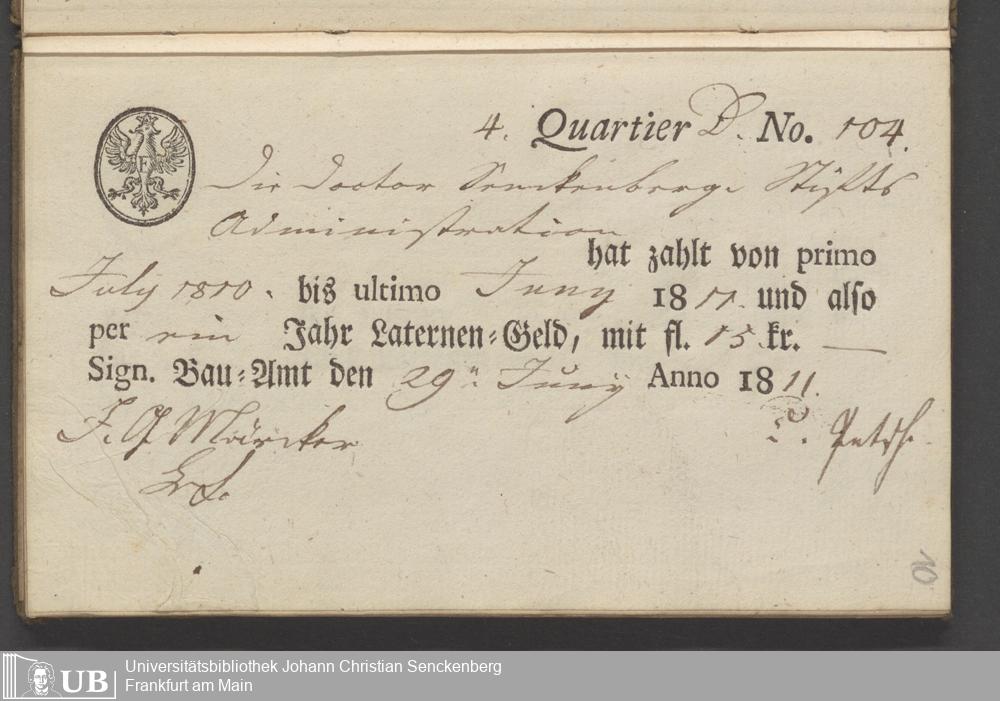 4. Quartier D. No. 104.
F
Die Doctor Senckenbergs Stiffts
Administration
hat zahlt von primo
July 1810. bis ultimo Juny 1811. und also
per ein Jahr Laternen=Geld, mit fl. 15 kr. —
Sign. Bau=Amt den 29n Juny Anno 1811.
F. G Märcker
10
UB
Universitätsbibliothek Johann Christian Senckenberg
Frankfurt am Main